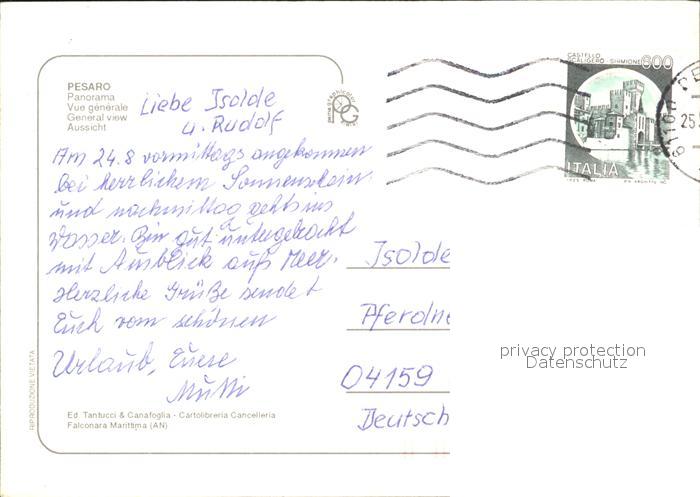 PESARO
Panorama
Vue générale
General view
Aussicht
Liebe Isolde
u. Rudolf
Am 24.8 vormittags angekommen
bei herrlichem Sonnenschein
und nachmittag gehts ins
Wasser. Bin gut untergebracht
mit Ausblick aufs Meer.
Herzliche Grüße sendet
Euch vom schönen
Urlaub, Euere
Mutti
Ed. Tantucci & Canafoglia - Cartolibreria Cancelleria
Falconara Marittima (AN)
RIPRODUZIONE VIETATA
CASTELLO
SCALIGERO - SIRMIONE
600
ITALIA
25.
Isolde
Pferdne
04159
Deutsch
privacy protection
Datenschutz